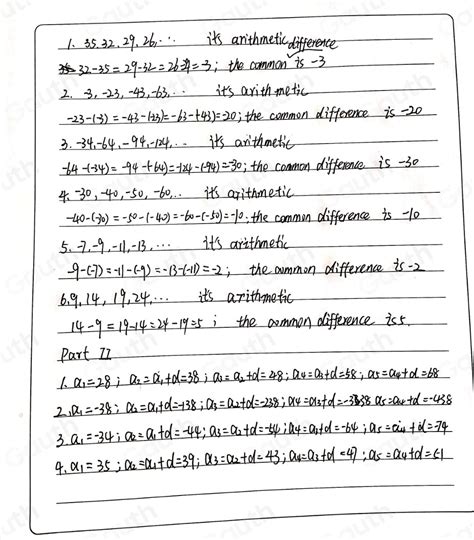 1. 35.32.29.26,... it's arithmetic difference
32-35=29-32=26-29=-3; the common is -3
2. -3,-23,-43,-63,... it's arithmetic
-23-(-3)=-43-(-23)=-63-(-43)=-20; the common difference is -20
3. -34,-64,-94,-124,... it's arithmetic
-64-(-34)=-94-(-64)=-124-(-94)=-30; the common difference is -30
4. -30,-40,-50,-60,... it's arithmetic
-40-(-30)=-50-(-40)=-60-(-50)=-10. the common difference is -10
5. -7,-9,-11,-13,... it's arithmetic
-9-(-7)=-11-(-9)=-13-(-11)=-2; the common difference is -2
6. 9,14,19,24,... it's arithmetic
14-9=19-14=24-19=5; the common difference is 5.
Part II
1. a1=28; a2=a1+d=38; a3=a2+d=48; a4=a3+d=58; a5=a4+d=68
2. a1=-38; a2=a1+d=-138; a3=a2+d=-238; a4=a3+d=-338 a5=a4+d=-438
3. a1=-34; a2=a1+d=-44; a3=a2+d=-54; a4=a3+d=-64; a5=a4+d=-74
4. a1=35; a2=a1+d=39; a3=a2+d=43; a4=a3+d=47; a5=a4+d=51